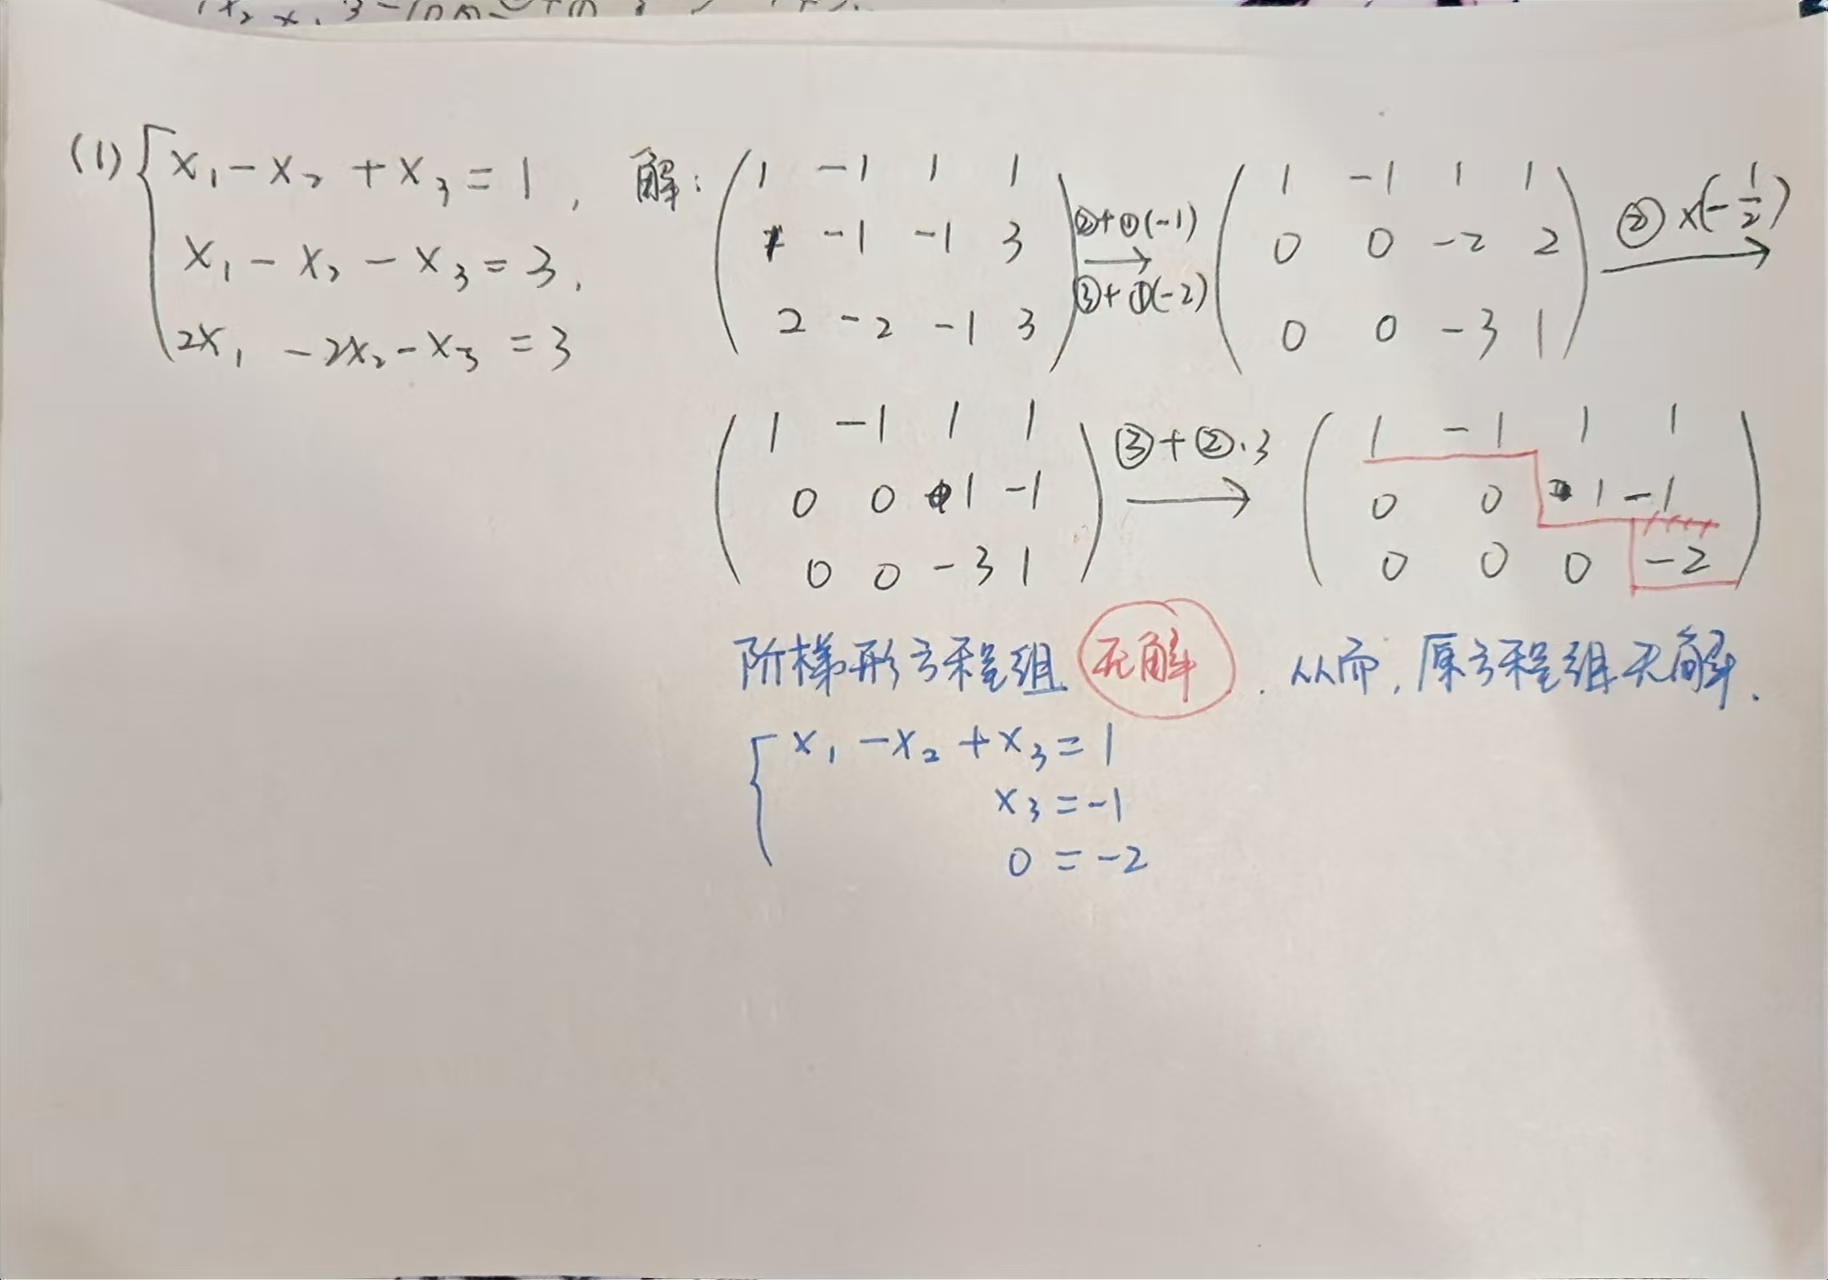 (1) { x₁ - x₂ + x₃ = 1,
x₁ - x₂ - x₃ = 3,
2x₁ - 2x₂ - x₃ = 3
解:
( 1 -1 1 1
1 -1 -1 3
2 -2 -1 3 )
②+①(-1)
→
③+①(-2)
( 1 -1 1 1
0 0 -2 2
0 0 -3 1 )
②×(-1/2)
→
( 1 -1 1 1
0 0 1 -1
0 0 -3 1 )
③+②·3
→
( 1 -1 1 1
0 0 1 -1
0 0 0 -2 )
阶梯形方程组 无解. 从而, 原方程组无解.
{ x₁ - x₂ + x₃ = 1
x₃ = -1
0 = -2